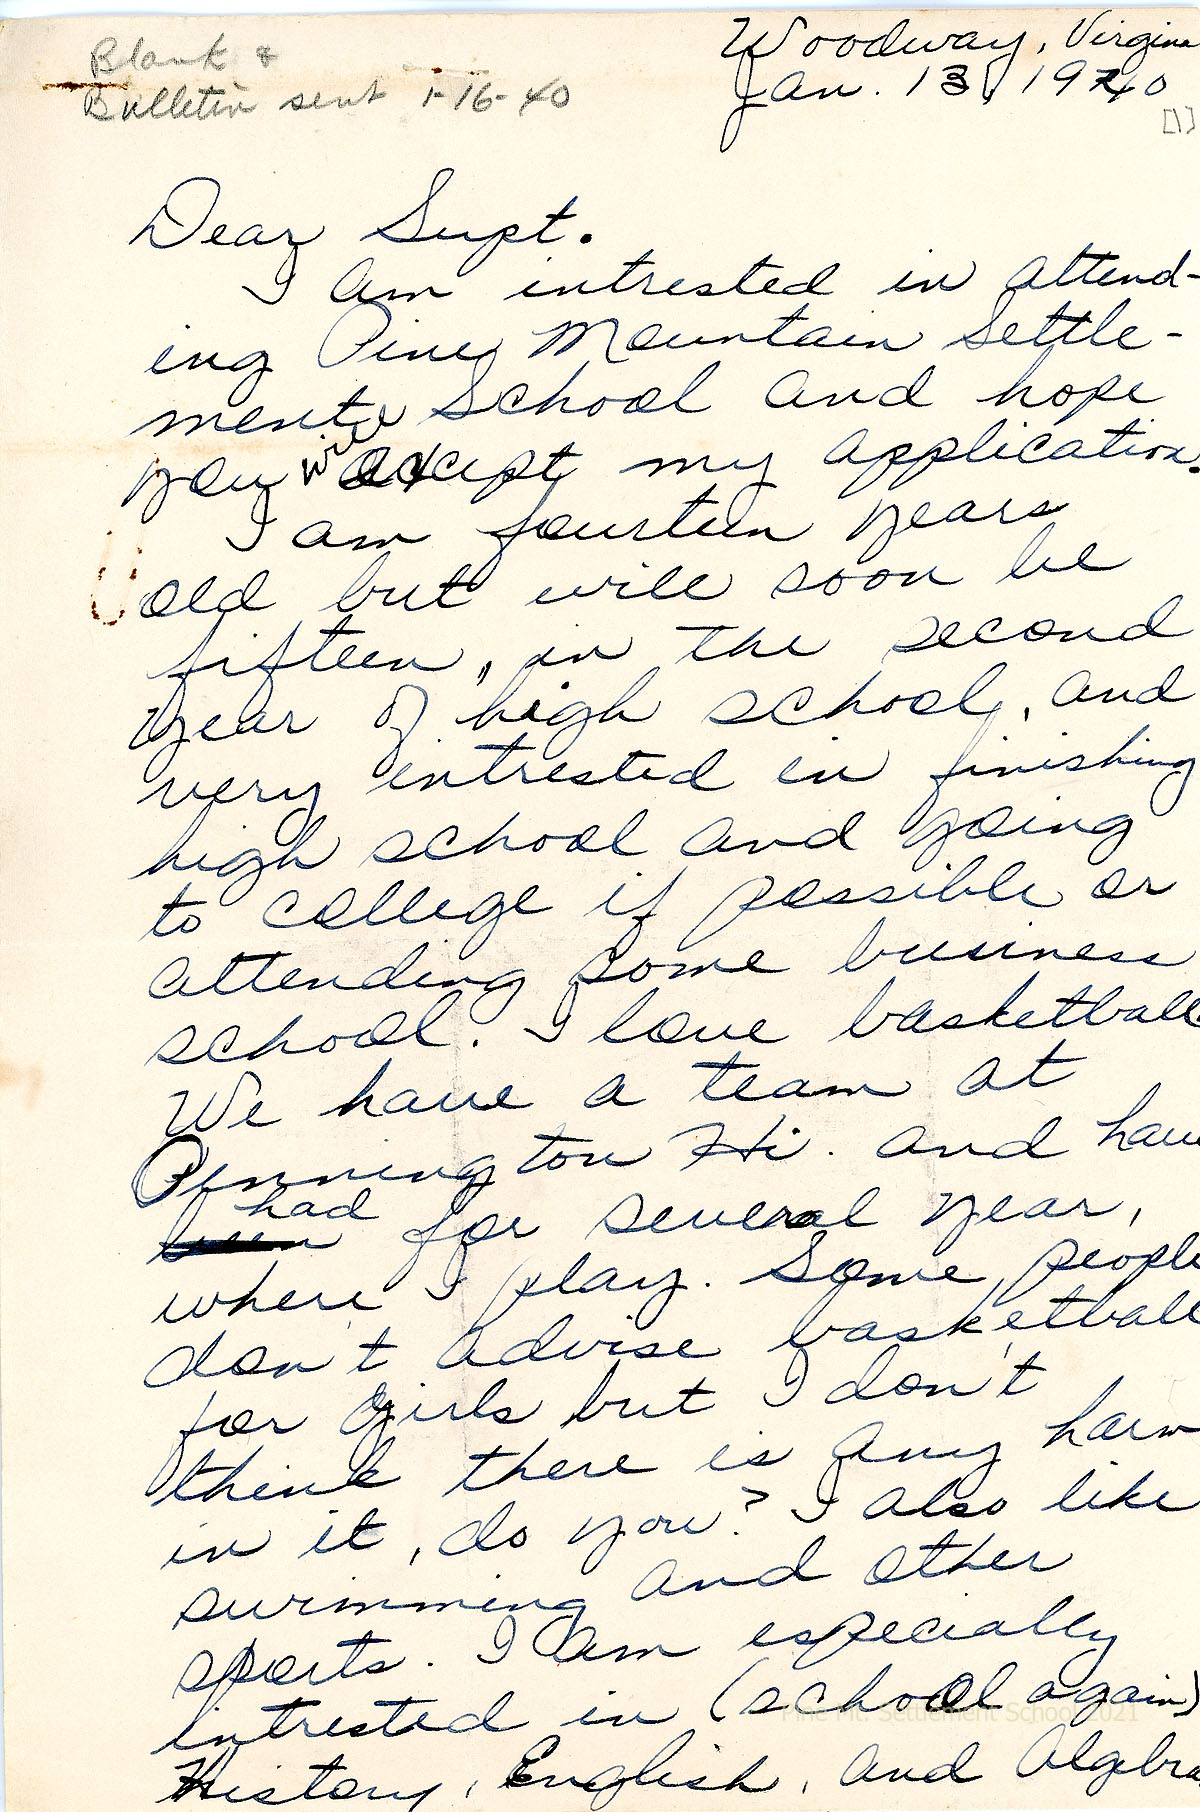 Blank &
Bulletin sent 1-16-40
Woodway, Virginia
Jan. 13, 1940
[1]
Dear Supt.
I am intrested in attend-
ing Pine Mountain Settle-
ment School and hope
you will accept my application.
I am fourteen years
old but will soon be
fifteen, in the second
year of high school, and
very intrested in finishing
high school and going
to college if possible or
attending some business
school. I love basketball
We have a team at
Pennington Hi. and have
had for several year,
where I play. Some people
don't advise basketball
for girls but I don't
think there is any harm
in it, do you? I also like
swimming and other
sports. I am especially
intrested in (school again)
History, English, and Algebra
Pine Mt. Settlement School 2021